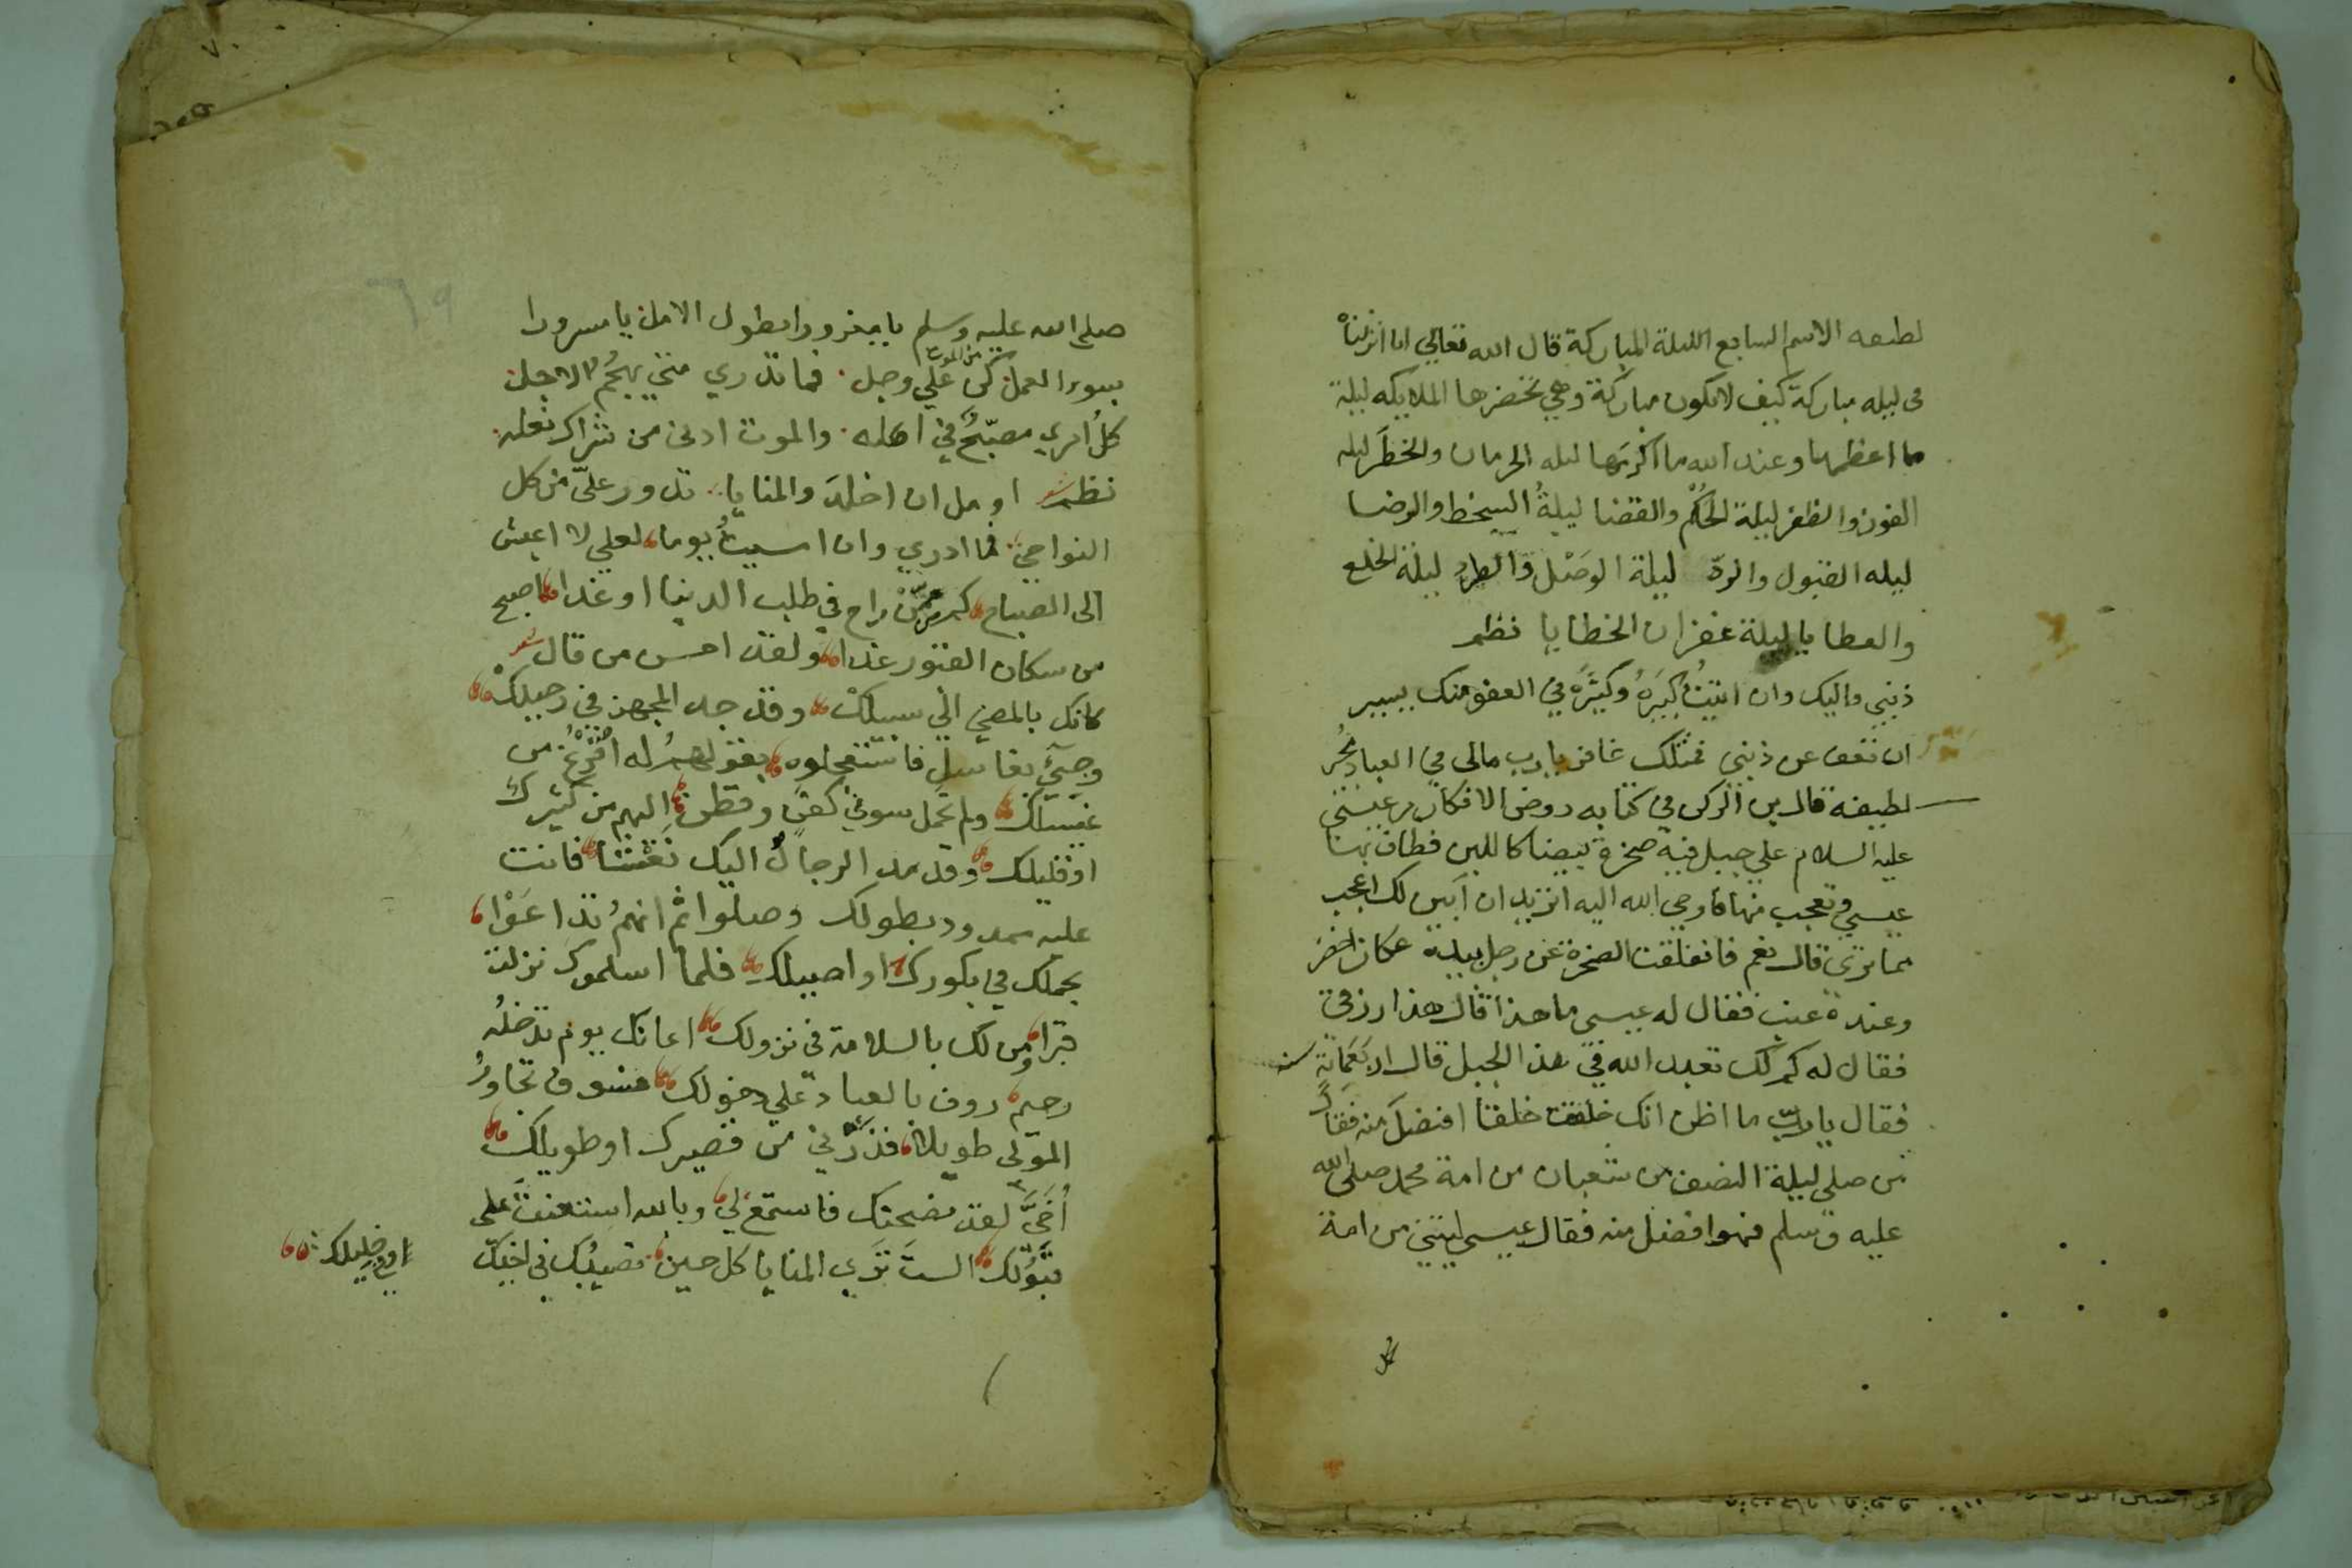 لطيفه الاسم السابع الليلة المباركة قال الله تعالي انا انزلناه
في ليله مباركة كيف لا تكون مباركة وهي تحضرها الملايكه ليلة
ما اعظمها وعند الله ما اكرمها ليله الحرمان والخطر ليله
الفوز والظفر ليلة الحكم والقضا ليلة السخط والرضا
ليله القبول والرد ليلة الوصل والطرد ليلة الخلع
والعطايا ليلة غفران الخطايا نظم
ذنبي واليك وان اتيت كبيره وكثيره في العفو منك يسير
ان تعف عن ذنبي فمثلك غافر يارب مالي في العباد
لطيفة قال في كتابه روض الافكار مر عيسي
عليه السلام علي جبل فيه صخرة بيضا كاللبن فطاف بها
عيسي وتعجب منها فاوحي الله اليه اتريد ان ابين لك اعجب
مما تري قال نعم فانفلقت الصخرة عن رجل بيده عكاز اخضر
وعنده عنب فقال له عيسي ما هذا قال هذا رزقي
فقال له كم لك تعبد الله في هذا الجبل قال اربعماية سنه
فقال يارب ما اظن انك خلقت خلقا افضل منه فقال
من صلي ليلة النصف من شعبان من امة محمد صلي الله
عليه وسلم فهو افضل منه فقال عيسي ليتني من امة
صلي الله عليه وسلم يا مغرورا بطول الامل يا مسرورا
بسوء العمل كن من الموت علي وجل فما تدري متي يهجم الاجل
كل امري مصبح في اهله والموت ادني من شراك نعله
نظم شعر اومل ان اخلد والمنايا تدور علي من كل
النواحي فما ادري وان امسيت يوما لعلي لا اعيش
الي الصباح كم ممن راح في طلب الدنيا او غدا اصبح
من سكان القبور غدا ولقد احسن من قال شعر
كانك بالمضي الي سبيلك وقد جد المجهز في رحيلك
وجيء بغاسل فاستعجلوه بقولهم له افرغ من
غسيلك ولم تحمل سوي كفن وقطن اليهم من كثيرك
او قليلك وقد مد الرجال اليك نعشا فانت
عليه ممدود بطولك وصلوا ثم انهم تداعوا
بحملك في بكورك او اصيلك فلما اسلموك نزلت
قبرا ومن لك بالسلامة في نزولك اعانك يوم تدخله
رحيم روف بالعباد علي دخولك فسوف تجاور
الموتي طويلا فذرني من قصيرك او طويلك
أخي لقد نصحتك فاستمع لي وبالله استعنت علي
قبولك الست تري المنايا كل حين تصيبك في اخيك
او في خليلك
٦٩